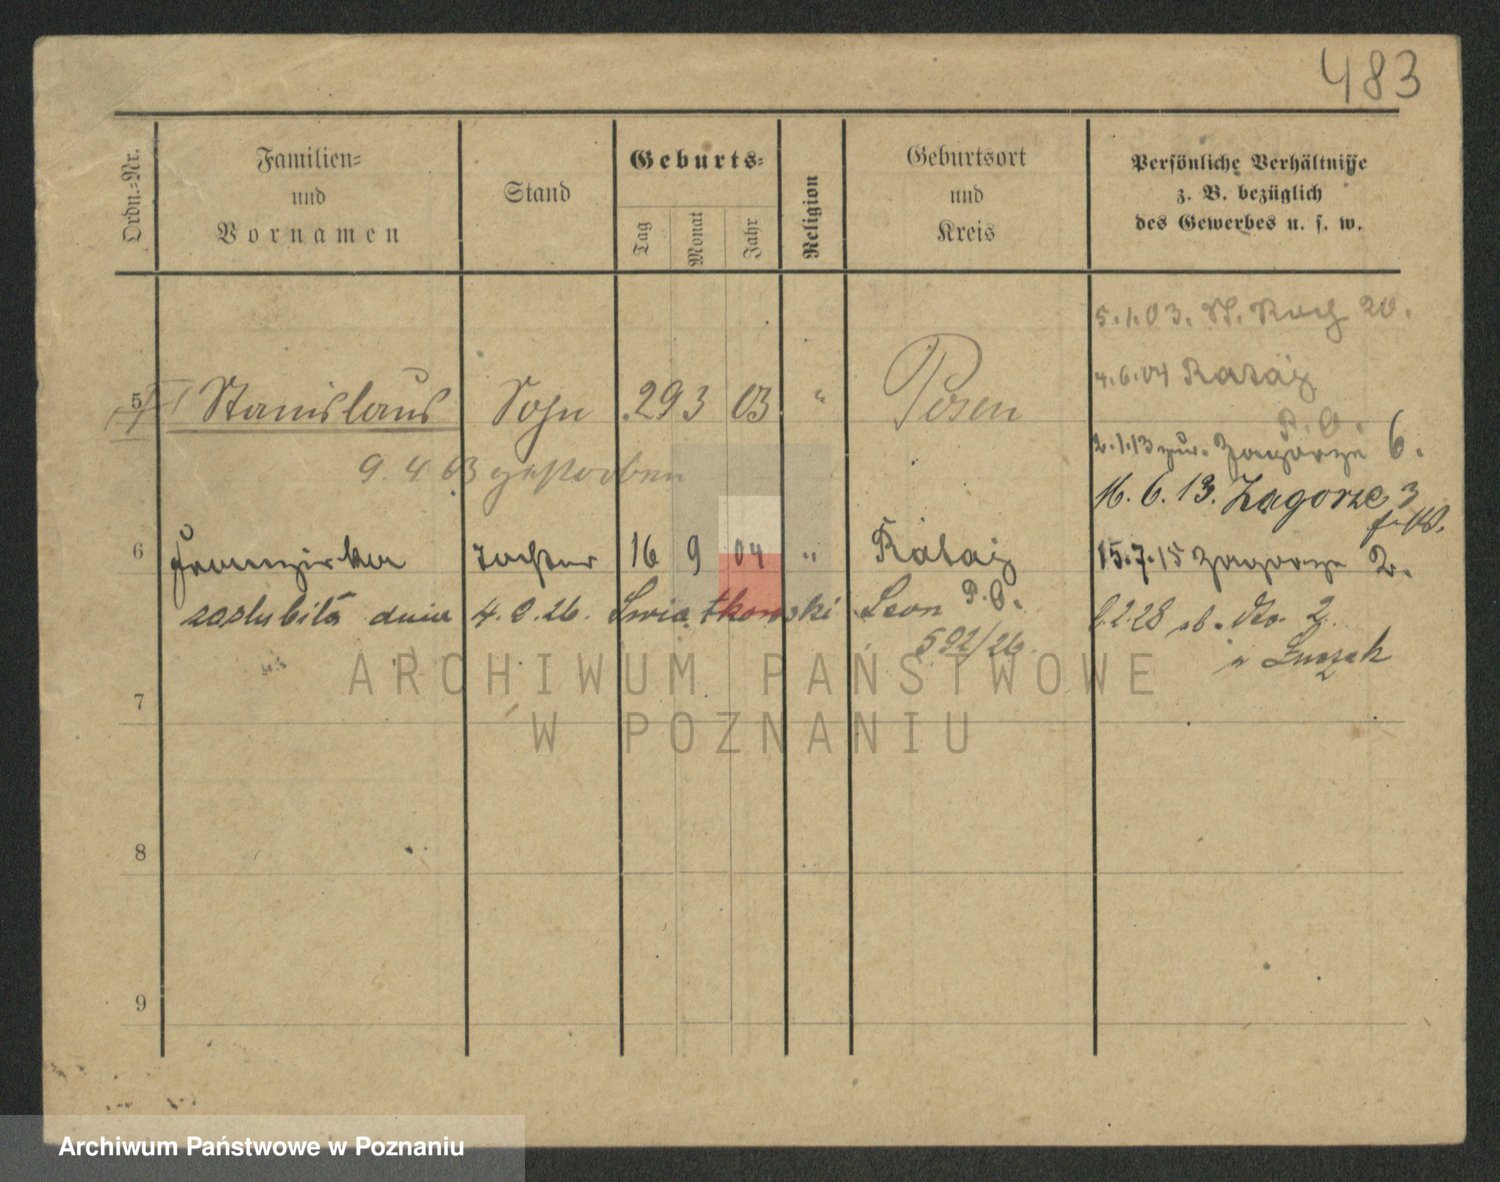 483
Ordn.-Nr.
Familien-
und
Vornamen
Stand
Geburts-
Tag
Monat
Jahr
Religion
Geburtsort
und
Kreis
Persönliche Verhältnisse
z. B. bezüglich
des Gewerbes u. s. w.
5.1.03. St. Roch 20.
4.6.04 Rataj
P. O.
5 Stanislaus Sohn 29 3 03 " Posen
2.1.13 zur. Zagorze 6.
9. 4. 03 gestorben
16. 6. 13. Zagorze 3
6 Franziska Tochter 16 9 04 " Rataj
P. O.
15.7.15 Zagorze 2.
zaślubiła dnia 4. 2. 26. Swiątkowski Leon
592/26.
2.2.28 2.
7
8
9
ARCHIWUM PAŃSTWOWE
W POZNANIU
Archiwum Państwowe w Poznaniu